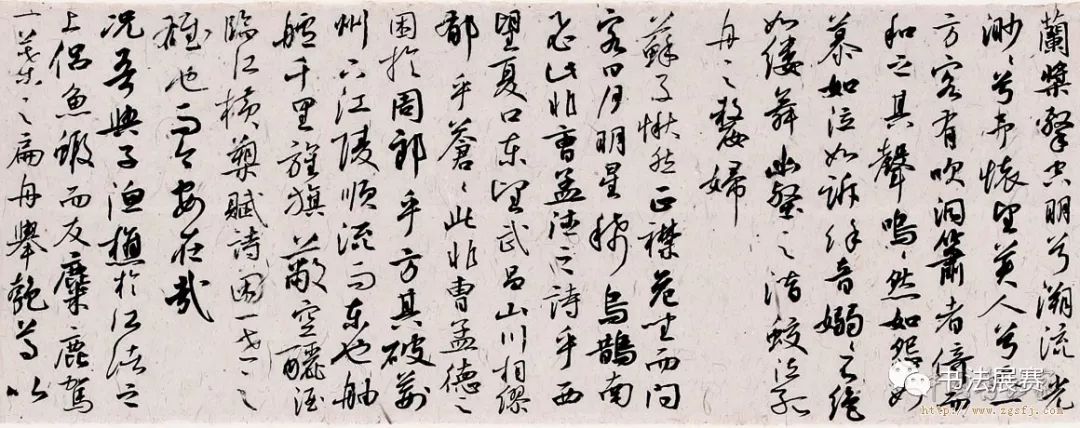 蘭槳擊空明兮溯流光
渺〻兮予懷望美人兮天一
方客有吹洞簫者倚而
和之其聲嗚〻然如怨如
慕如泣如訴餘音嫋〻不絕
如縷舞幽壑之潛蛟泣孤
舟之嫠婦
蘇子愀然正襟危坐而問
客曰月明星稀烏鵲南
飛此非曹孟德之詩乎西
望夏口東望武昌山川相繆
郁乎蒼〻此非曹孟德之
困於周郎乎方其破荊
州下江陵順流而東也舳
艫千里旌旗蔽空釃酒
臨江橫槊賦詩固一世之
雄也而今安在哉
況吾與子漁樵於江渚之
上侶魚蝦而友麋鹿駕
一葉之扁舟舉匏尊以
书法展赛
http://www.zgsfj.com